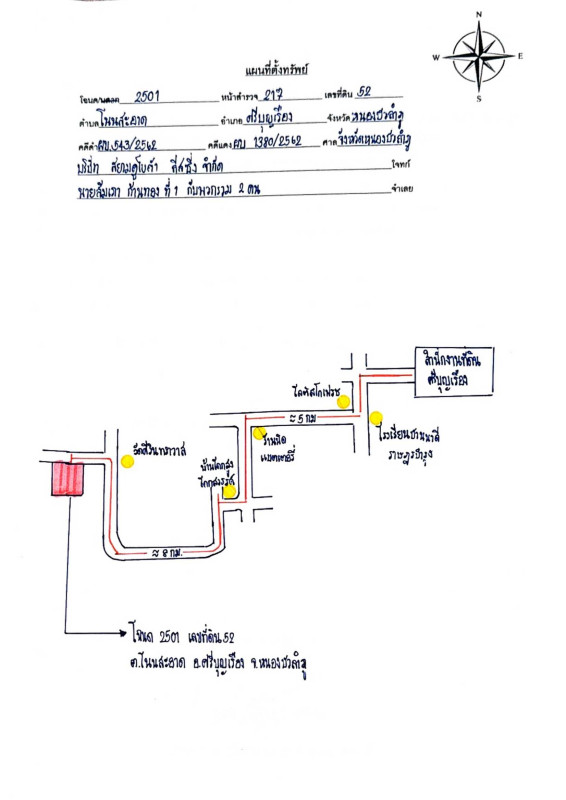 N
W E
S
แผนที่ตั้งทรัพย์
โฉนด/นส3ก 2501 หน้าสำรวจ 217 เลขที่ดิน 52
ตำบล โนนสะอาด อำเภอ ศรีบุญเรือง จังหวัด หนองบัวลำภู
คดีดำ ผบ.543/2562 คดีแดง ผบ 1380/2562 ศาล จังหวัดหนองบัวลำภู
บริษัท สยามคูโบต้า ลีสซิ่ง จำกัด โจทก์
นายสัมเภา ก้านทอง ที่ 1 กับพวกรวม 2 คน จำเลย
สำนักงานที่ดิน
ศรีบุญเรือง
โลตัสโกเฟรช
≈ 5 กม
โรงเรียน
ราษฎรบำรุง
ร้าน
แบตเตอรี่
วัดศรี
บ้านโคกสูง
≈ 8 กม.
โฉนด 2501 เลขที่ดิน 52
ต.โนนสะอาด อ.ศรีบุญเรือง จ.หนองบัวลำภู